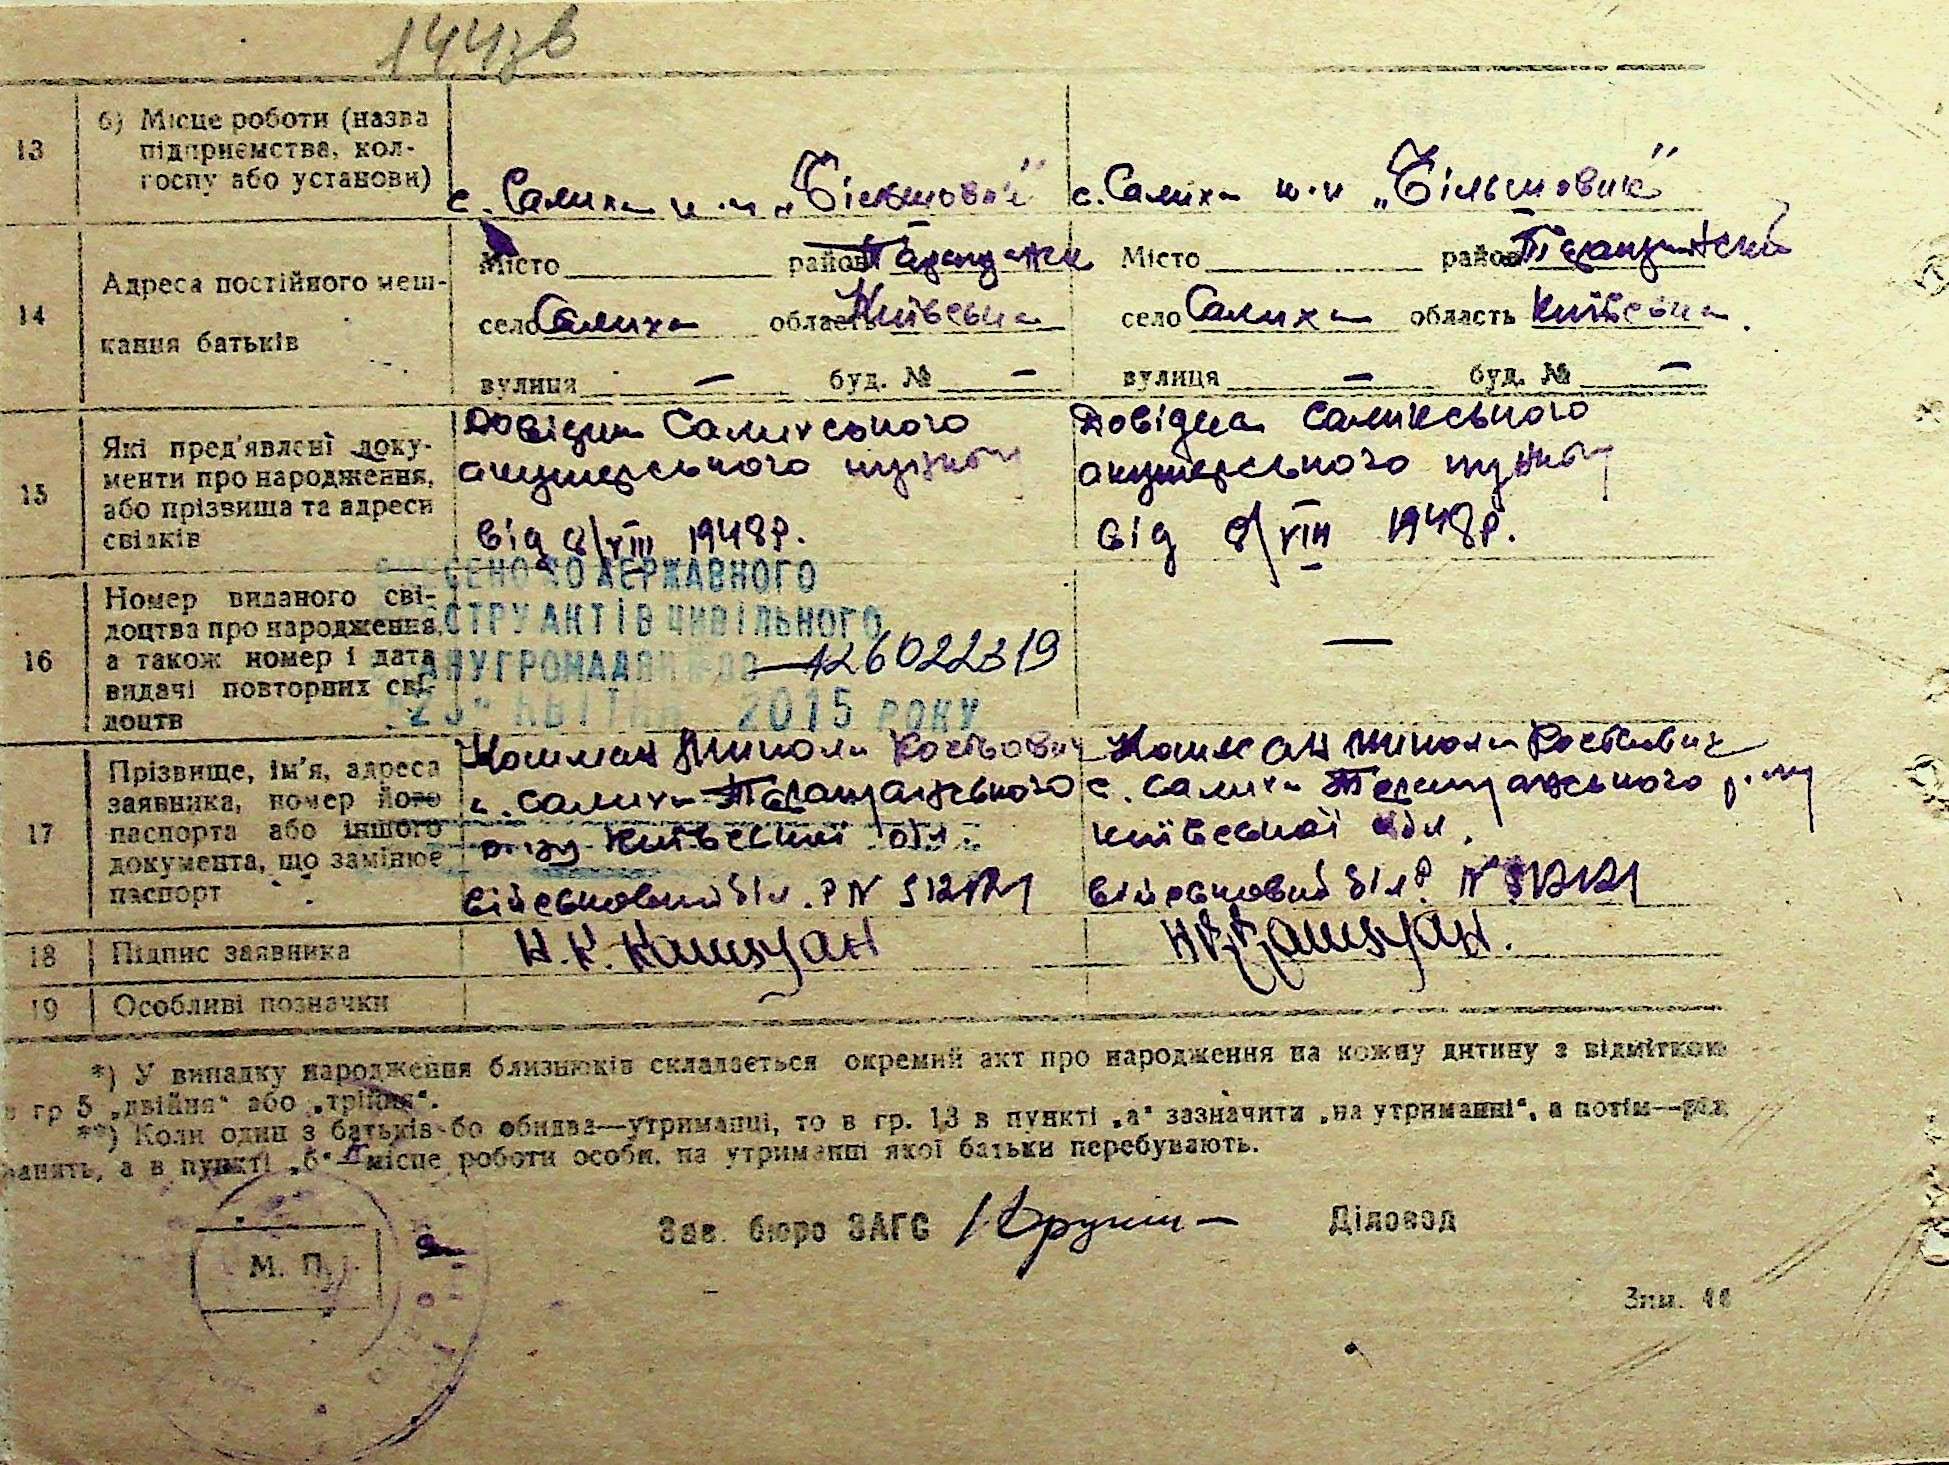 144зв
13
б) Місце роботи (назва
підприємства, кол-
госпу або установи)
с. Салиха к-п „Більшовик"
с. Салиха к-п „Більшовик"
14
Адреса постійного меш-
кання батьків
Місто район
село Салиха область Київська
вулиця — буд. № —
Місто район
село Салиха область Київська
вулиця — буд. № —
15
Які пред'явлені доку-
менти про народження,
або прізвища та адреси
свідків
Довідка Салихського
акушерського пункту
від 8/VIII 1948р.
Довідка Салихського
акушерського пункту
від 8/VIII 1948р.
16
Номер виданого сві-
доцтва про народження,
а також номер і дата
видачі повторних сві-
доцтв
ДЕРЖАВНОГО
АКТІВ ЦИВІЛЬНОГО
126022319
КВІТНЯ 2015 РОКУ
—
17
Прізвище, ім'я, адреса
заявника, номер його
паспорта або іншого
документа, що замінює
паспорт
Кошман Микола Костьович
с. Салиха
р-ну Київської обл.
військовий біл.
Кошман Микола Костьович
с. Салиха р-ну
Київської обл.
військовий біл.
18
Підпис заявника
Н. К. Кошман
Кошман.
19
Особливі позначки
*) У випадку народження близнюків складається окремий акт про народження на кожну дитину з відміткою
в гр 5 „двійня" або „трійня".
**) Коли один з батьків або обидва—утриманці, то в гр. 13 в пункті „а" зазначити „на утриманні", а потім—рід
занять, а в пункті „б"—місце роботи особи, на утриманні якої батьки перебувають.
Зав. бюро ЗАГС
Діловод
М. П.
Зам.